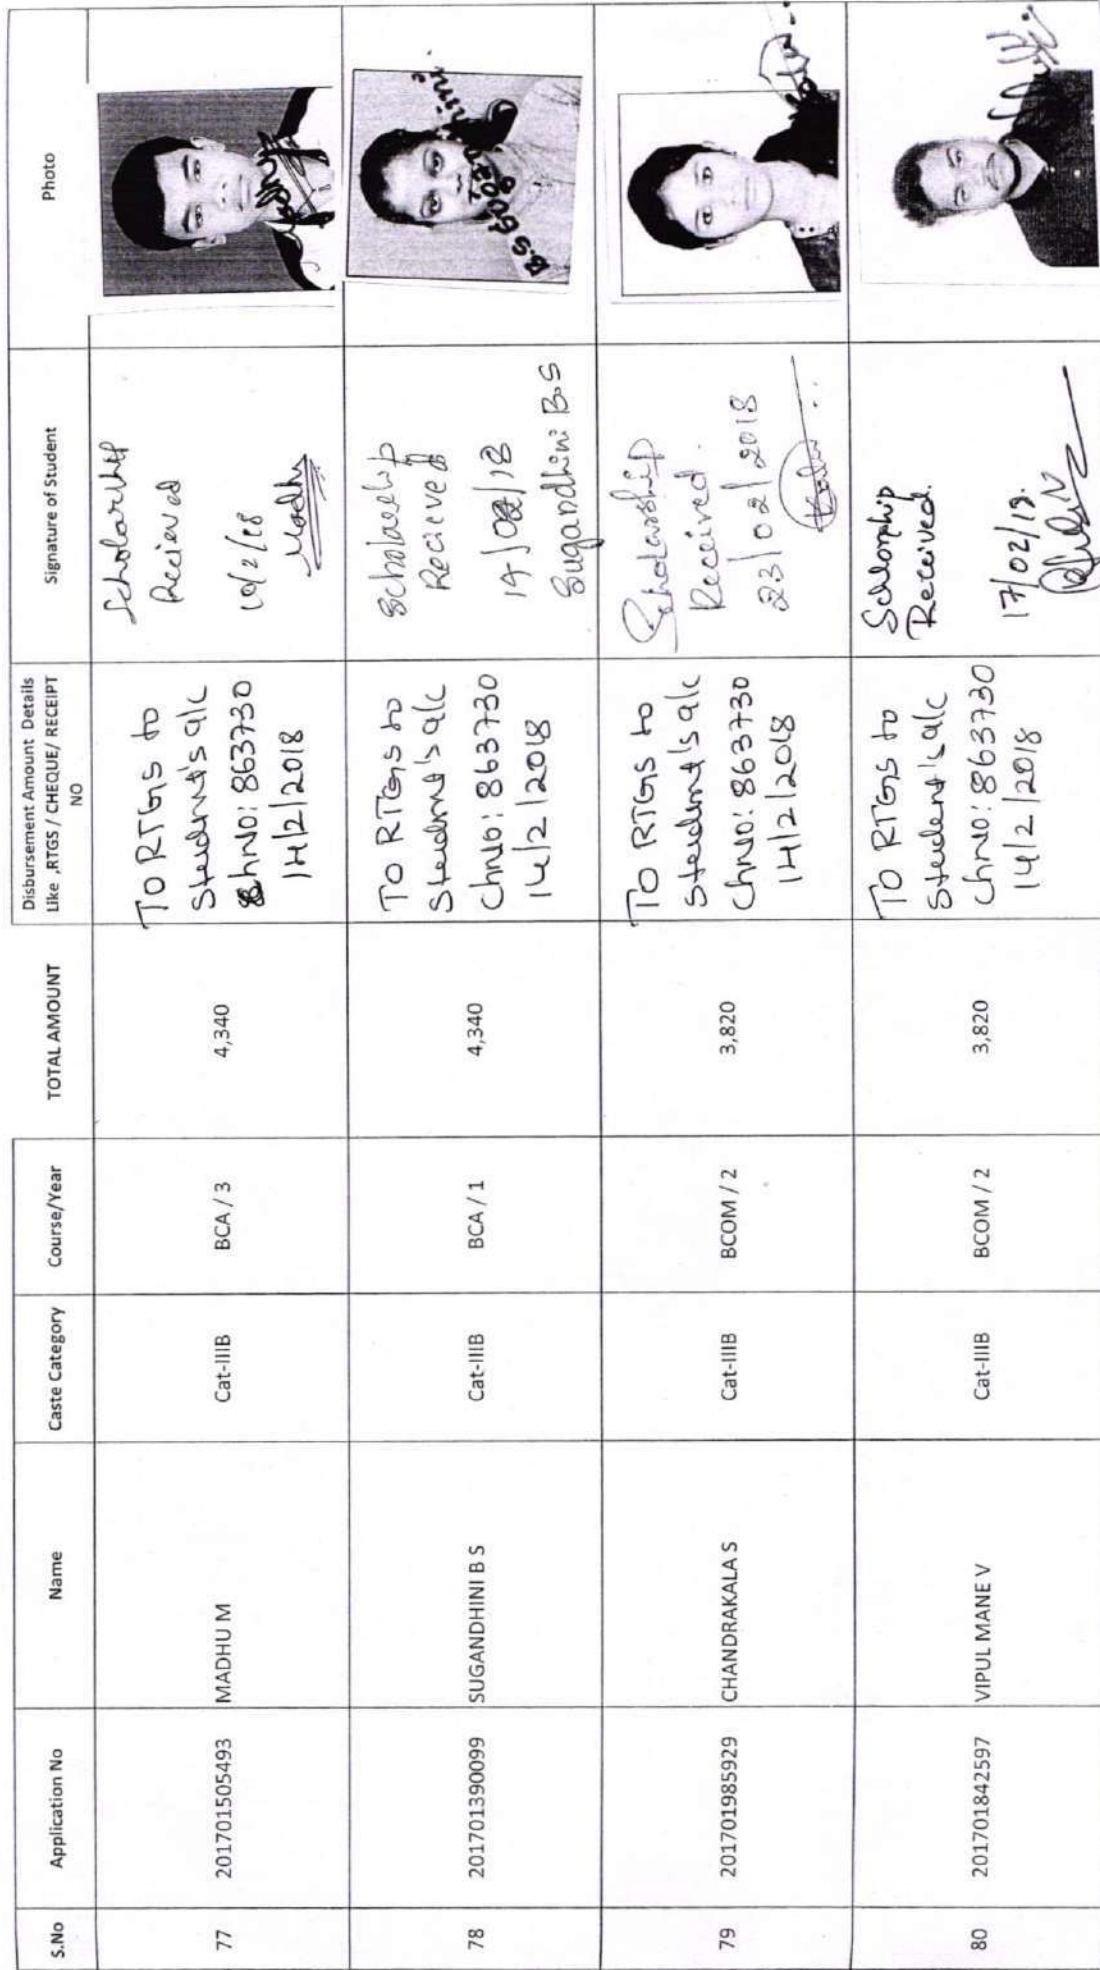 S.No
Application No
Name
Caste Category
Course/Year
TOTAL AMOUNT
Disbursement Amount Details
Like ,RTGS / CHEQUE/ RECEIPT
NO
Signature of Student
Photo
77
201701505493
MADHU M
Cat-IIIB
BCA / 3
4,340
TO RTGS to
Student's a/c
ChNo: 863730
14/2/2018
Scholarship
Recieved
Madhu
78
201701390099
SUGANDHINI B S
Cat-IIIB
BCA / 1
4,340
TO RTGS to
Student's a/c
ChNo: 863730
14/2/2018
Scholarship
Recieved
14/02/18
Sugandhini B.S
79
201701985929
CHANDRAKALA S
Cat-IIIB
BCOM / 2
3,820
TO RTGS to
Student's a/c
ChNo: 863730
14/2/2018
Scholarship
Received.
23/02/2018
80
201701842597
VIPUL MANE V
Cat-IIIB
BCOM / 2
3,820
TO RTGS to
Student's a/c
ChNo: 863730
14/2/2018
Scholarship
Received.